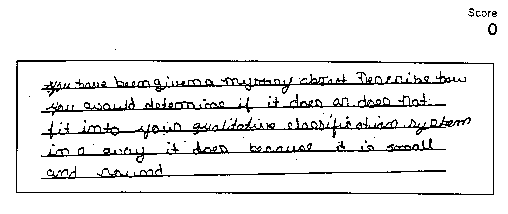 Score
0
You have been given a mystery object Describe how
you would determine if it does or does not
fit into your qualitative classification system
in a way it does because it is small
and round.